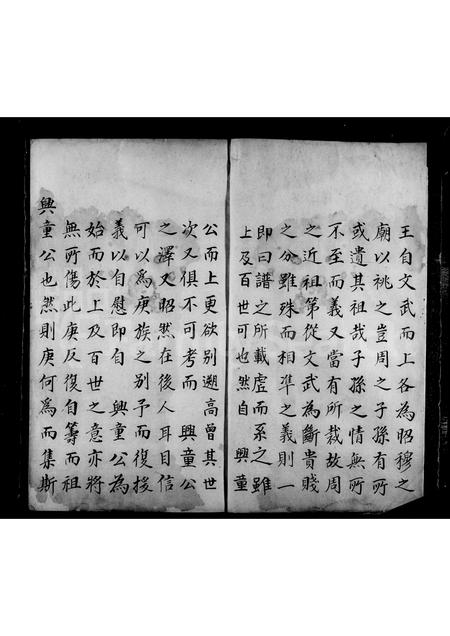 王自文武而上各為昭穆之
廟以祧之豈周之子孫有所
或遺其祖哉子孫之情無所
不至而義又當有所裁故周
之近祖第從文武為斷貴賤
之分雖殊而相準之義則一
即曰譜之所載虛而系之雖
上及百世可也然自 興童
公而上更欲別遡高曾其世
次又俱不可考而 興童公
之澤又昭然在後人耳目信
可以為庚族之別予而復援
義以自慰即自 興童公為
始而於上及百世之意亦將
無所傷此庚反復自籌而祖
興童公也然則庚何為而集斯